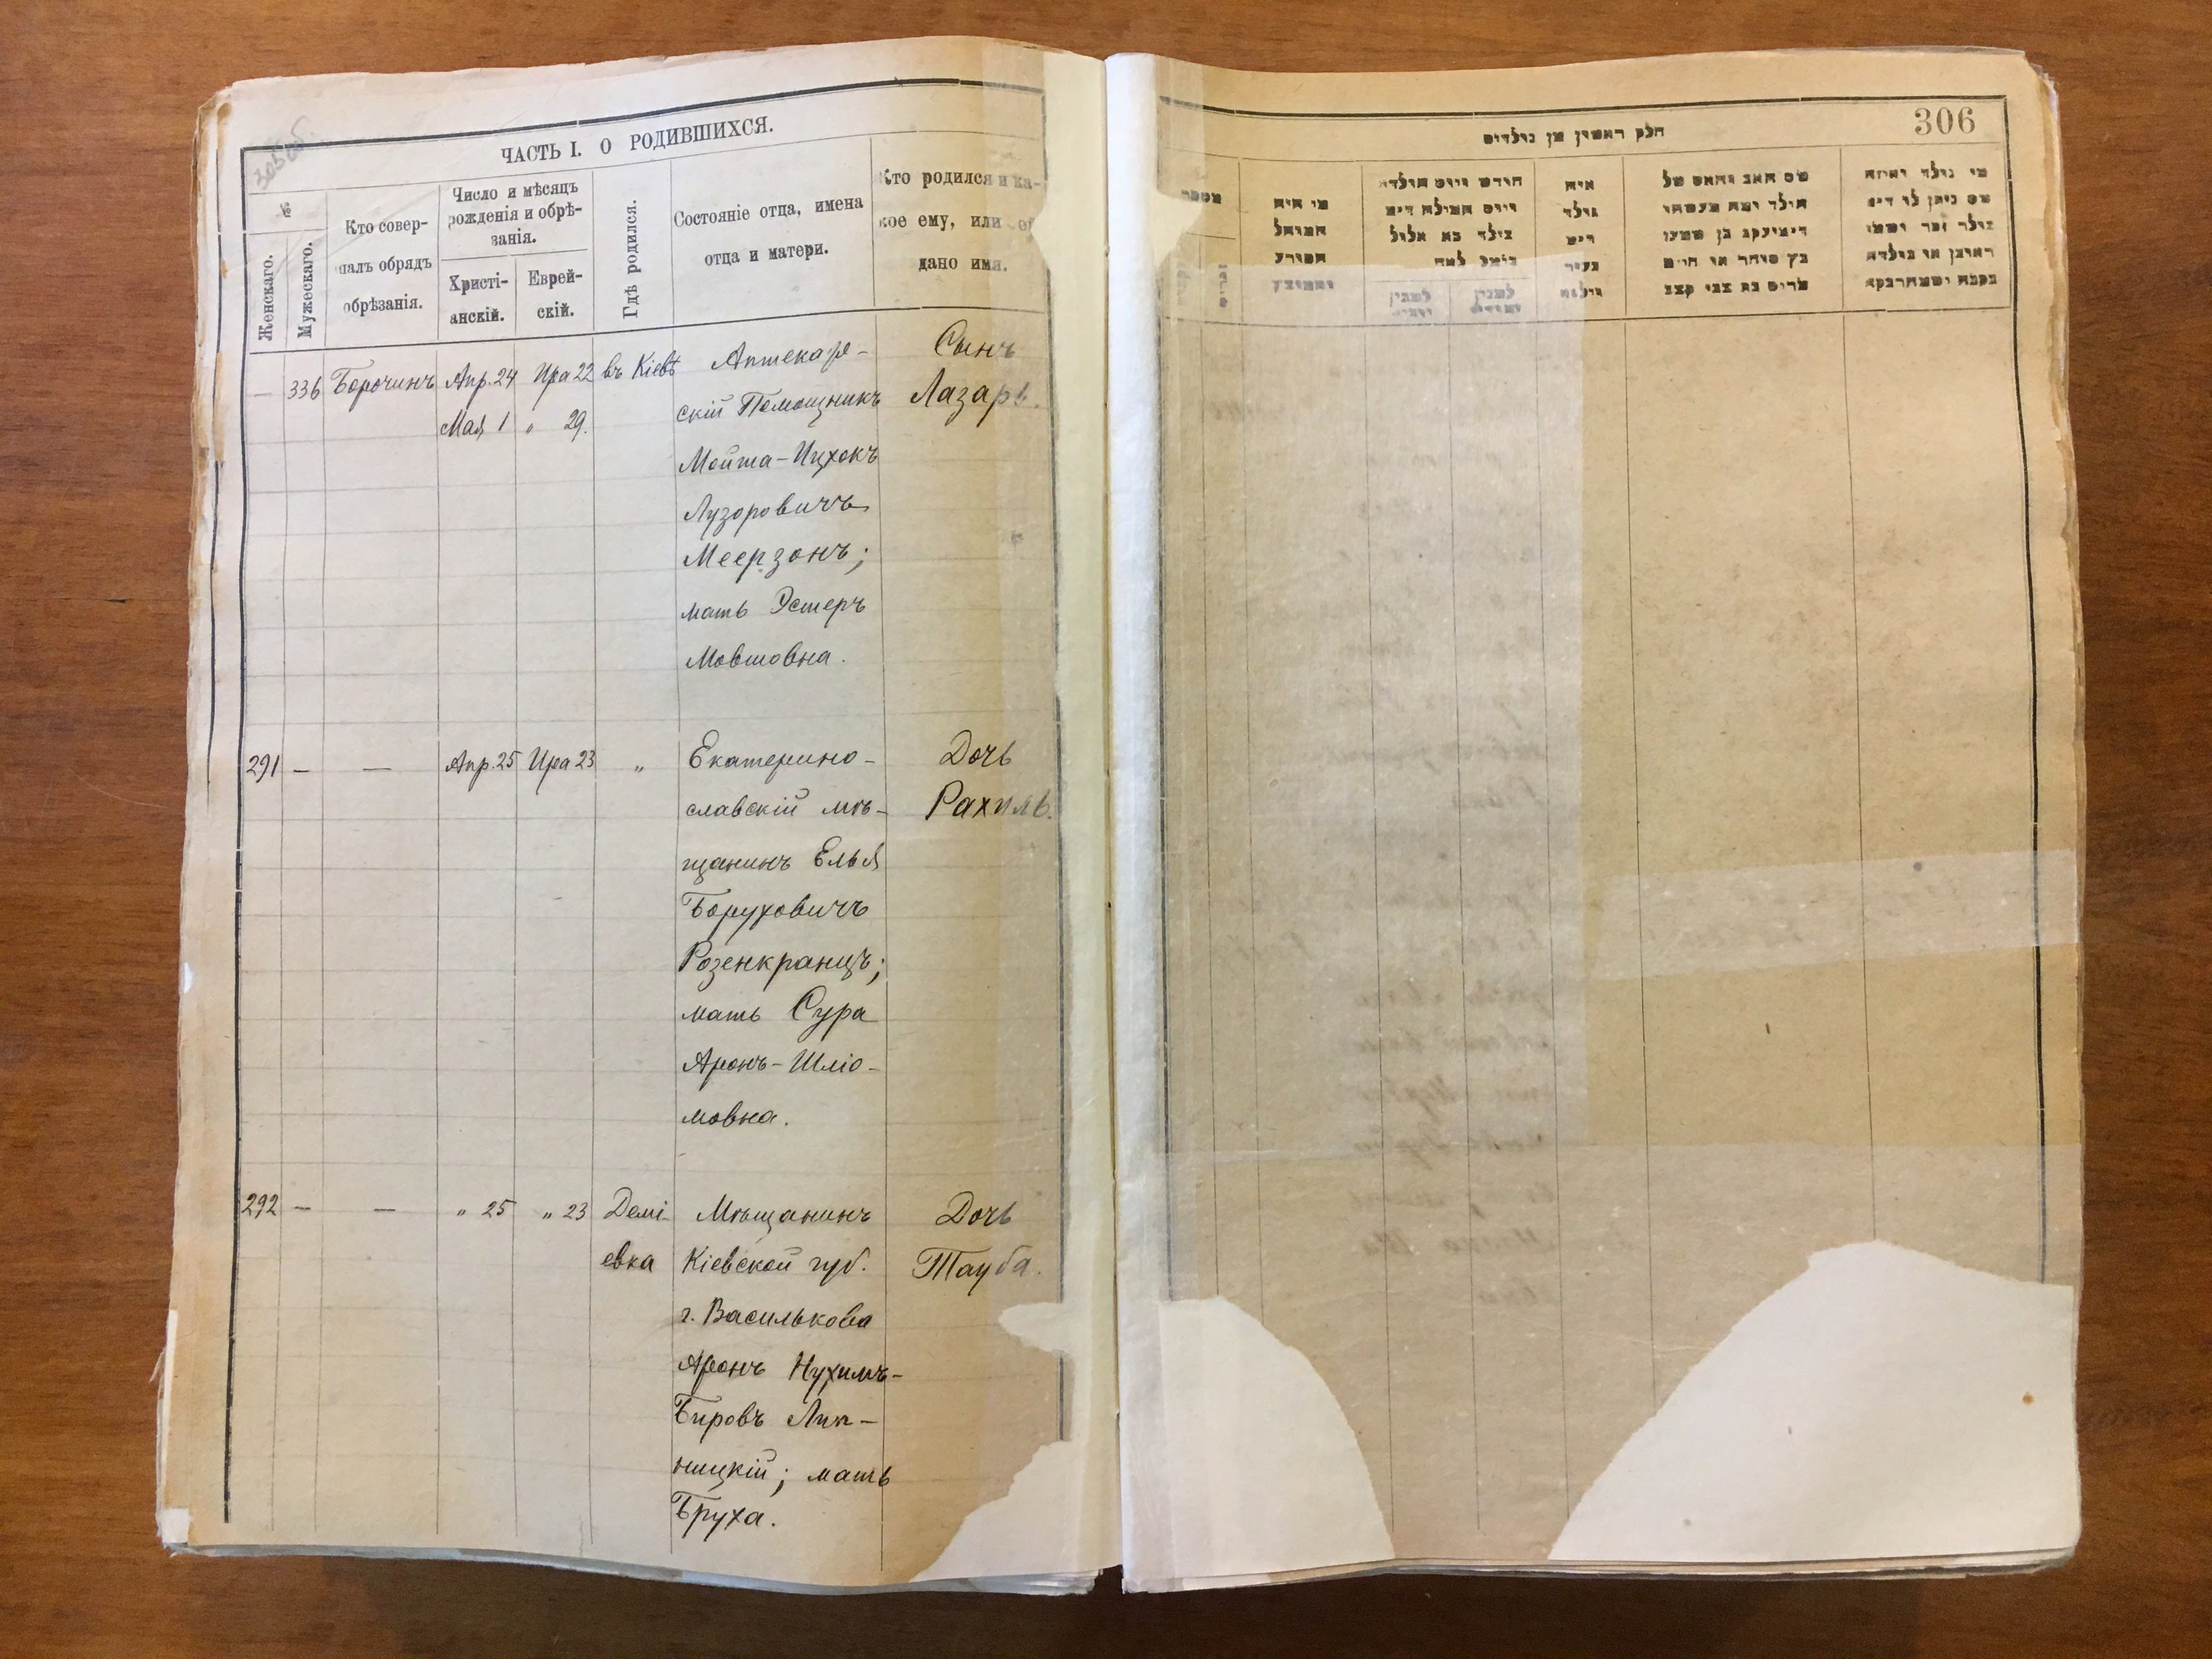 305об.
ЧАСТЬ I. О РОДИВШИХСЯ.
№
Женскаго.
Мужескаго.
Кто совер-
шалъ обрядъ
обрѣзанія.
Число и мѣсяцъ
рожденія и обрѣ-
занія.
Христі-
анскій.
Еврей-
скій.
Гдѣ родился.
Состояніе отца, имена
отца и матери.
Кто родился и ка-
кое ему, или ей
дано имя.
— 336 Борочинъ Апр. 24 Ира 22 въ Кіевѣ Аптекар- Сынъ
Мая 1 " 29. скій Помощникъ Лазарь.
Мойша-Ицхокъ
Лузоровичъ
Меерзонъ;
мать Эстеръ
Мовшовна.
291 — — Апр. 25 Ира 23 " Екатерино- Дочь
славскій мѣ- Рахиль.
щанинъ Элья
Боруховичъ
Розенкранцъ;
мать Сура
Аронъ-Шліо-
мовна.
292 — — " 25 " 23 Демі- Мѣщанинъ Дочь
евка Кіевской губ. Тауба.
г. Василькова
Аронъ Нухимъ-
Бировъ Лип-
ницкій; мать
Бруха.
306
חלק ראשון מן נולדים
מספר
מי היה
המוהל
חודש ויום הולדת
ויום המילה
איה
נולד
שם האב והאם של
הילד ומה מעשהו
מי נולד ואיזה
שם ניתן לו